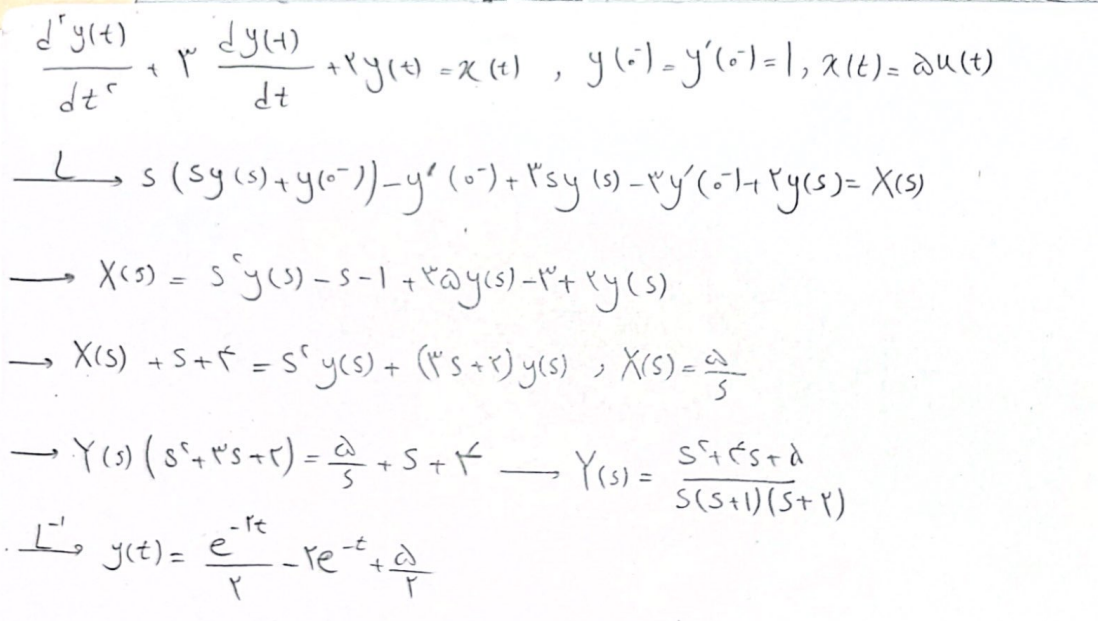 d²y(t)/dt² + ۳ dy(t)/dt + ۲y(t) = x(t) , y(0⁻) = y′(0⁻) = 1, x(t) = ۵u(t)
L→ s(sy(s) + y(0⁻)) − y′(0⁻) + ۳sy(s) − ۳y′(0⁻) + ۲y(s) = X(s)
→ X(s) = s^۲y(s) − s − 1 + ۳۵y(s) − ۳ + ۲y(s)
→ X(s) + s + ۴ = s^۲y(s) + (۳s + ۲)y(s) , X(s) = ۵/s
→ Y(s)(s^۲ + ۳s + ۲) = ۵/s + s + ۴ → Y(s) = (s^۲ + ۴s + ۵)/(s(s+1)(s+۲))
L⁻¹→ y(t) = e^(−۲t)/۲ − ۲e^(−t) + ۵/۲